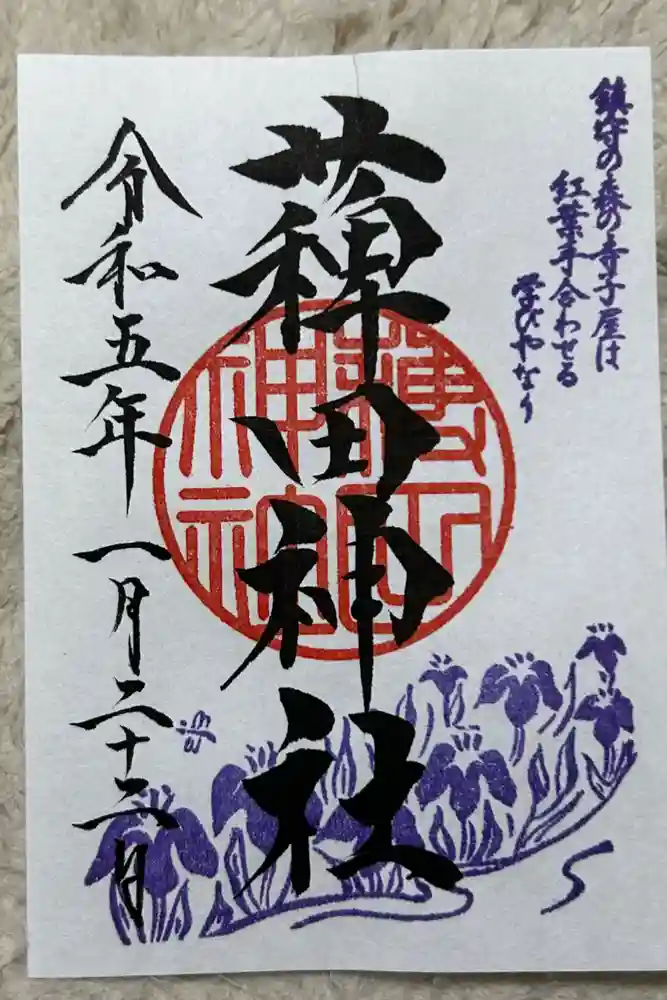 鎮守の森の寺子屋は
紅葉手合わせる
学びやなり
薭田神社
令和五年一月二十二日